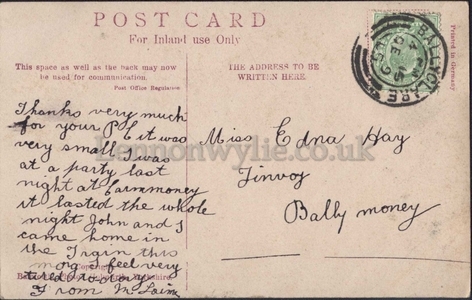 POST CARD
For Inland use Only
This space as well as the back may now
be used for communication.
Post Office Regulation
THE ADDRESS TO BE
WRITTEN HERE.
Printed in Germany
BALLYCLARE
Thanks very much
for your P C it was
very small I was
at a party last
night at Carnmoney
it lasted the whole
night John and I
came home in
the Train this
morg I feel very
tired
From
Miss Edna Hay
Finvoy
Bally money
Lennonwylie.co.uk